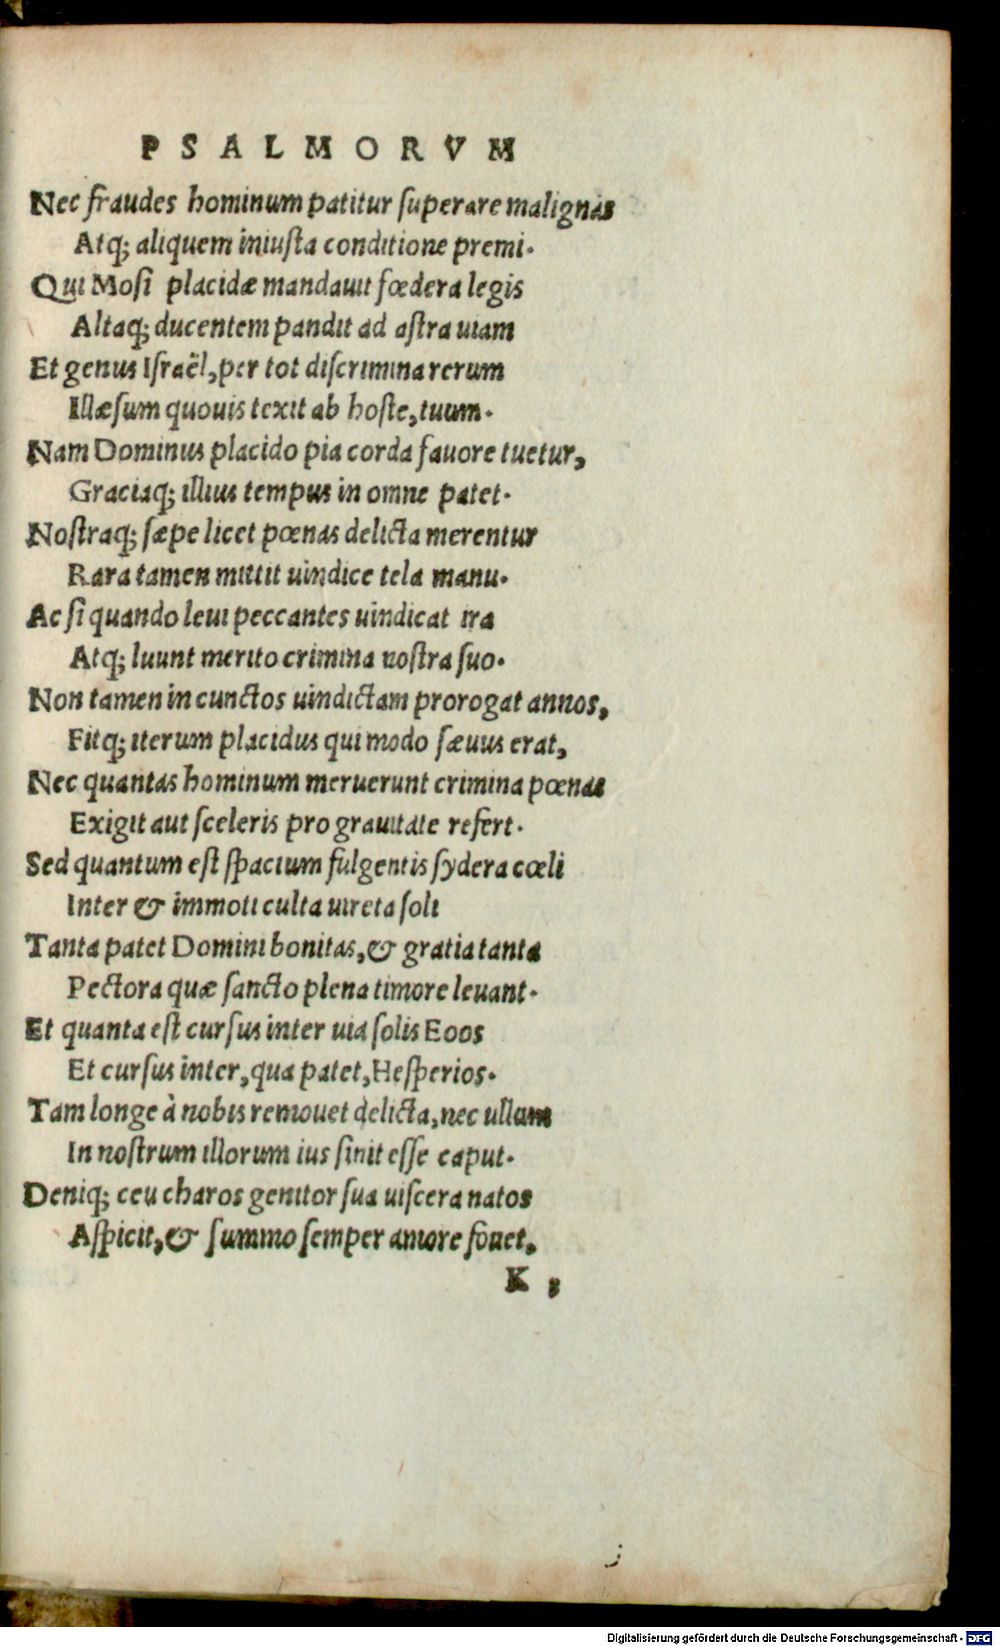 PSALMORVM
Nec fraudes hominum patitur ſuperare malignas
Atq; aliquem iniuſta conditione premi.
Qui Moſi placidæ mandauit fœdera legis
Altaq; ducentem pandit ad aſtra uiam
Et genus Iſraël, per tot diſcrimina rerum
Illæſum quouis texit ab hoſte, tuum.
Nam Dominus placido pia corda fauore tuetur,
Graciaq; illius tempus in omne patet.
Noſtraq; ſæpe licet pœnas delicta merentur
Rara tamen mittit uindice tela manu.
Ac ſi quando leui peccantes uindicat ira
Atq; luunt merito crimina noſtra ſuo.
Non tamen in cunctos uindictam prorogat annos,
Fitq; iterum placidus qui modo ſæuus erat,
Nec quantas hominum meruerunt crimina pœnas
Exigit aut ſceleris pro grauitate refert.
Sed quantum eſt ſpacium fulgentis ſydera cœli
Inter & immoti culta uireta ſoli
Tanta patet Domini bonitas, & gratia tanta
Pectora quæ ſancto plena timore leuant.
Et quanta eſt curſus inter uia ſolis Eoos
Et curſus inter, qua patet, Heſperios.
Tam longe à nobis remouet delicta, nec ullum
In noſtrum illorum ius ſinit eſſe caput.
Deniq; ceu charos genitor ſua uiſcera natos
Aſpicit, & ſummo ſemper amore fouet,
K ;
Digitalisierung gefördert durch die Deutsche Forschungsgemeinschaft - DFG